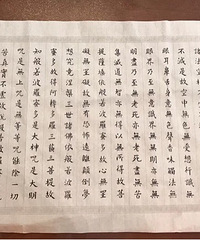 諸法空相
不減是故空中無色無受想行識無
眼耳鼻舌身意無色聲香味觸法無
眼界乃至無意識界無無明亦無無
明盡乃至無老死亦無老死盡無苦
集滅道無智亦無得以無所得故菩
提薩埵依般若波羅蜜多故心無罣
礙無罣礙故無有恐怖遠離顛倒夢
想究竟涅槃三世諸佛依般若波羅
蜜多故得阿耨多羅三藐三菩提故
知般若波羅蜜多是大神咒是大明
咒是無上咒是無等等咒能除一切
苦真實不虛故說般若波羅